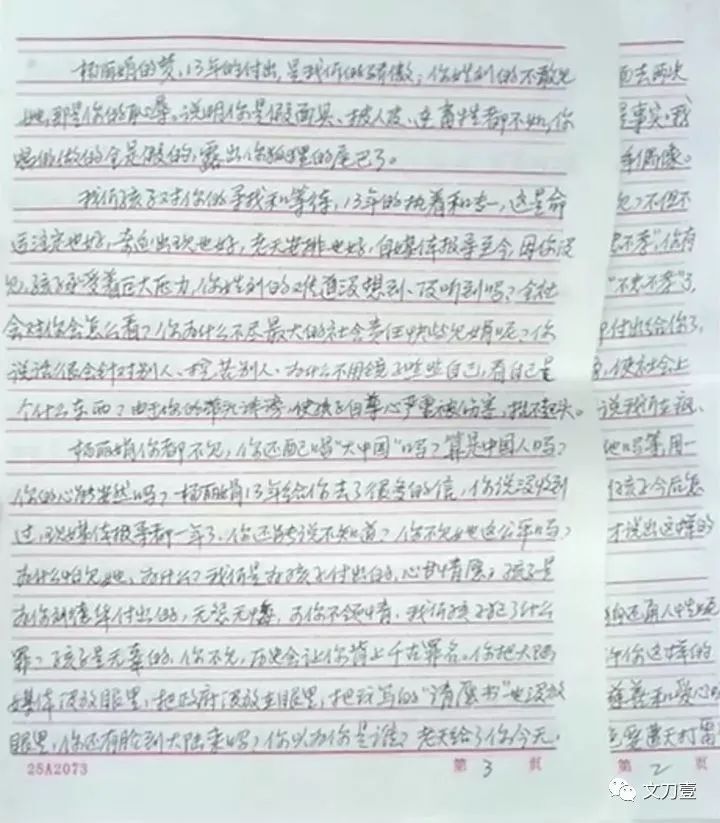 杨丽娟的梦,13年的付出,是我们的骄傲,你姓刘的不敢见
她,那是你的耻辱。说明你是假面具、披人皮、连畜牲都不如,你
唱的做的全是假的,露出你狐狸的尾巴了。
我们孩子对你的寻找和等待,13年的执着和专一,这是命
运注定也好,奇迹出现也好,老天安排也好,自媒体报导至今,因你没
见,孩子承受着巨大压力,你姓刘的难道没想到、没听到吗?全社
会对你会怎么看?你为什么不尽最大的社会责任快些见娟呢?你
说话很会针对别人、挖苦别人、为什么不用镜子照照自己,看自己是
个什么东西?由于你的 使孩子自尊心严重被伤害,抬不起头。
杨丽娟你都不见,你还配唱“大中国”吗?算是中国人吗?
你的心能安然吗?杨丽娟13年给你去了很多的信,你说没收到
过,现媒体报导都一年了,你还能说不知道?你不见她这公平吗?
为什么怕见她,为什么?我们是为孩子付出的,心甘情愿,孩子是
为你刘德华付出的,无怨无悔,可你不领情,我们孩子犯了什么
罪?孩子是无辜的,你不见,历史会让你背上千古罪名。你把大陆
媒体没放眼里,把政府没放在眼里,把我写的“请愿书”也没放
眼里,你还有脸到大陆来吗?你以为你是谁?老天给了你今天,
25A2073 第 3 页
面去两次
是事实,我
偶像。
见?不但不
不孝”,你有
“不忠不孝”了,
付出给你了,
,使社会上
说我们在疯、
她吗等,用一
孩子今后怎
才说出这样的
你这样的
慈善和爱心
要遭天打雷
第 2 页
文刀壹